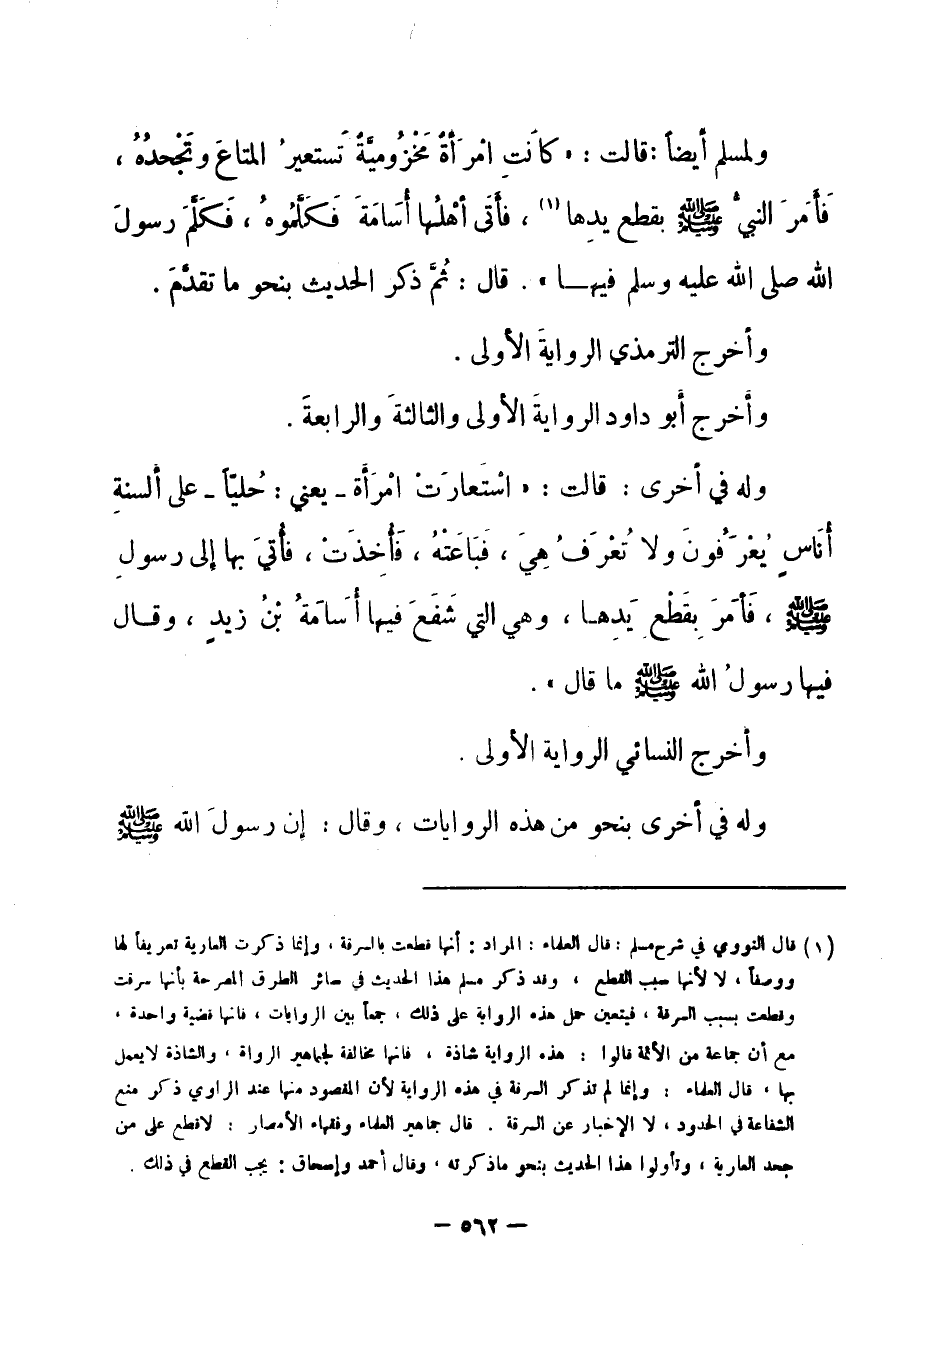 ولمسلم أيضاً : قالت : « كانَتِ امْرَأةٌ مَخْزُوميَّةٌ تَستعيرُ المتاعَ وتَجْحدُهُ ،
فَأَمَرَ النبيُّ ﷺ بقطع يدِها (١) ، فأَتَى أهْلُها أُسَامَةَ فَكلَّمُوهُ ، فَكَلَّمَ رسولَ
الله صلى الله عليه وسلم فيهــا » . قال : ثُمَّ ذكر الحديث بنحو ما تقدَّمَ .
وأخرج الترمذي الروايةَ الأولى .
وأخرج أبو داود الروايةَ الأولى والثالثةَ والرابعةَ .
وله في أخرى : قالت : « اسْتَعارَتْ امْرَأَة ـ يعني : حُليّاً ـ على ألسنةِ
أُنَاسٍ يُعْرَفُونَ ولا تُعْرَفُ هِيَ ، فَبَاعَتْهُ ، فَأُخِذَتْ ، فأُتيَ بها إلى رسولِ
ﷺ ، فَأمَرَ بِقَطْعِ يَدِهـا ، وهي التي شَفَعَ فيها أُسَامَةُ بْنُ زيدٍ ، وقـال
فيها رسولُ الله ﷺ ما قال » .
وأخرج النسائي الرواية الأولى .
وله في أخرى بنحو من هذه الروايات ، وقال : إن رسولَ الله ﷺ
(١) قال النووي في شرح مسلم : قال العلماء : المراد : أنها قطعت بالسرقة ، وإنما ذكرت العارية تعريفاً لها
ووصفاً ، لا لأنها سبب القطع ، وقد ذكر مسلم هذا الحديث في سائر الطرق المصرحة بأنها سرقت
وقطعت بسبب السرقة ، فيتعين حمل هذه الرواية على ذلك ، جمعاً بين الروايات ، فانها قضية واحدة ،
مع أن جماعة من الأئمة قالوا : هذه الرواية شاذة ، فانها مخالفة لجماهير الرواة ، والشاذة لايعمل
بها ، قال العلماء : وإنما لم تذكر السرقة في هذه الرواية لأن المقصود منها عند الراوي ذكر منع
الشفاعة في الحدود ، لا الإخبار عن السرقة . قال جماهير العلماء وفقهاء الأمصار : لاقطع على من
جحد العارية ، وتأولوا هذا الحديث بنحو ماذكرته ، وقال أحمد وإسحاق : يجب القطع في ذلك .
— ٥٦٢ —